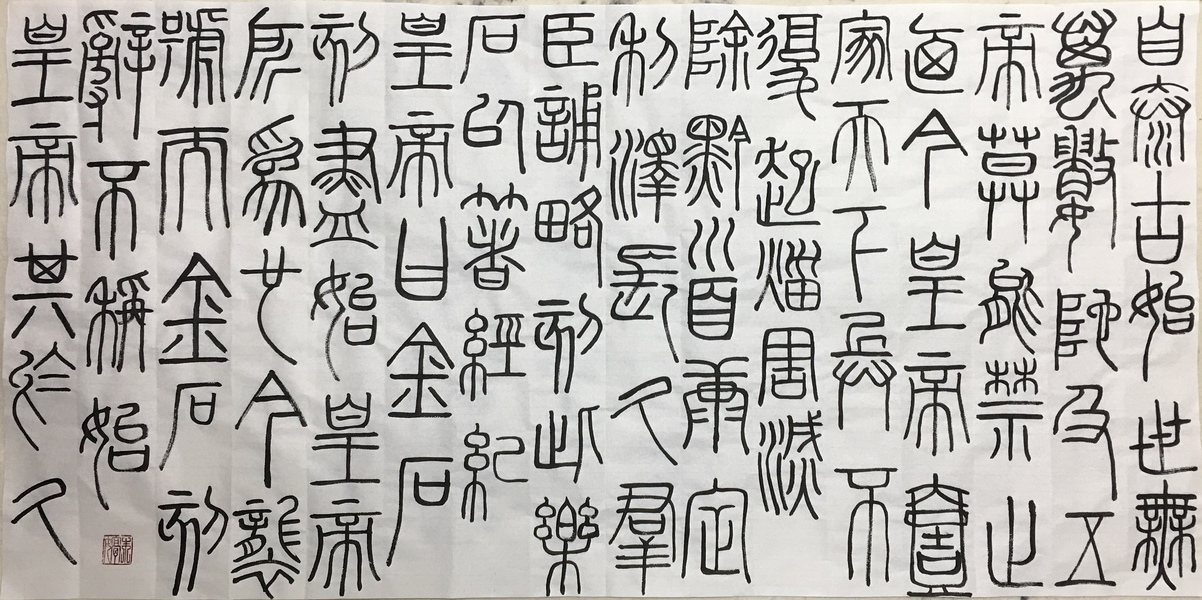 自泰古始世無
萬數陀及五
帝莫能禁止
廼今皇帝壹
家天下兵不
復起災害滅
除黔首康定
利澤長久群
臣誦略刻此樂
石以著經紀
皇帝曰金石
刻盡始皇帝
所為也今襲
號而金石刻
辭不稱始
皇帝其於久